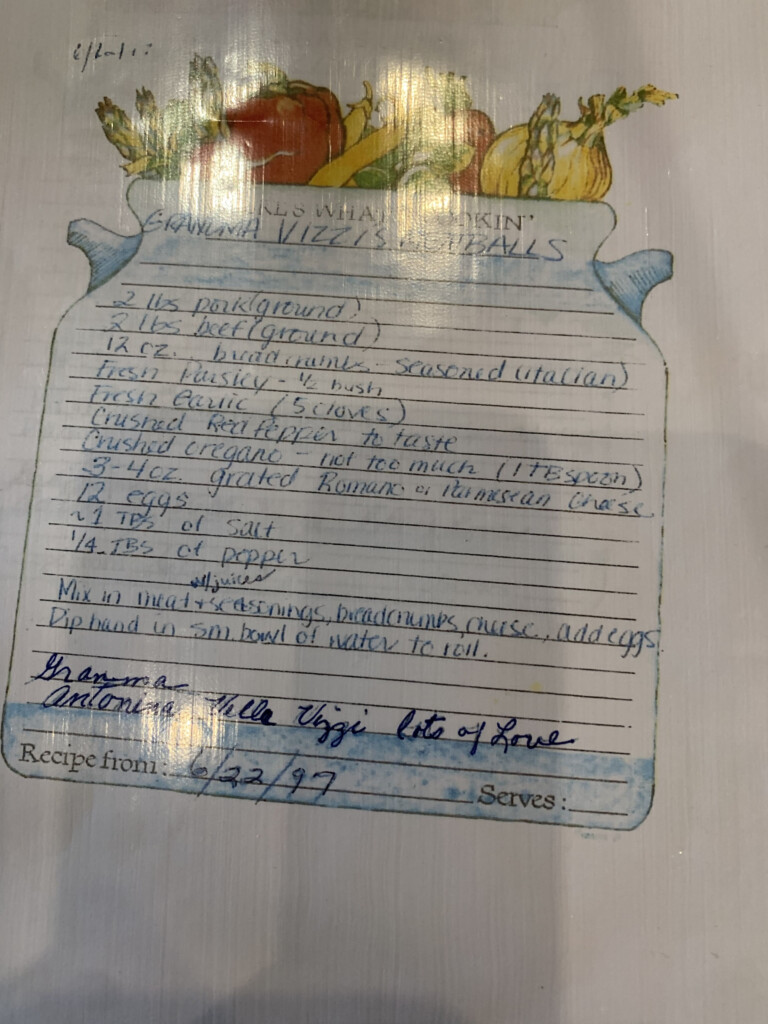 WHAT COOKIN'
GRANDMA VIZZI'S MEATBALLS
2 lbs pork (ground)
2 lbs beef (ground)
12 oz. breadcrumbs - seasoned (italian)
Fresh Parsley - 1/2 bush
Fresh Garlic (5 cloves)
Crushed Red Pepper to taste
Crushed oregano - not too much (1 TB spoon)
3-4 oz. grated Romano or Parmesean Cheese
12 eggs
~1 TBS of Salt
1/4 TBS of pepper
w/juices
Mix in meat + seasonings, breadcrumbs, cheese, add eggs.
Dip hand in sm. bowl of water to roll.
Gramma
Antonina Vizzi lots of Love
Recipe from: 6/22/97 Serves: